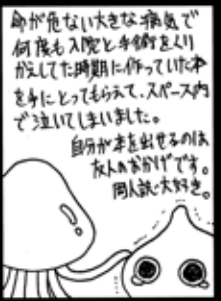 命が危ない大きな病気で
何度も入院と手術をくり
かえしてた時期に作っていた本
を手にとってもらえて、スペース内
で泣いてしまいました。
自分が本を出せるのは
友人のおかげです。
同人誌大好き。